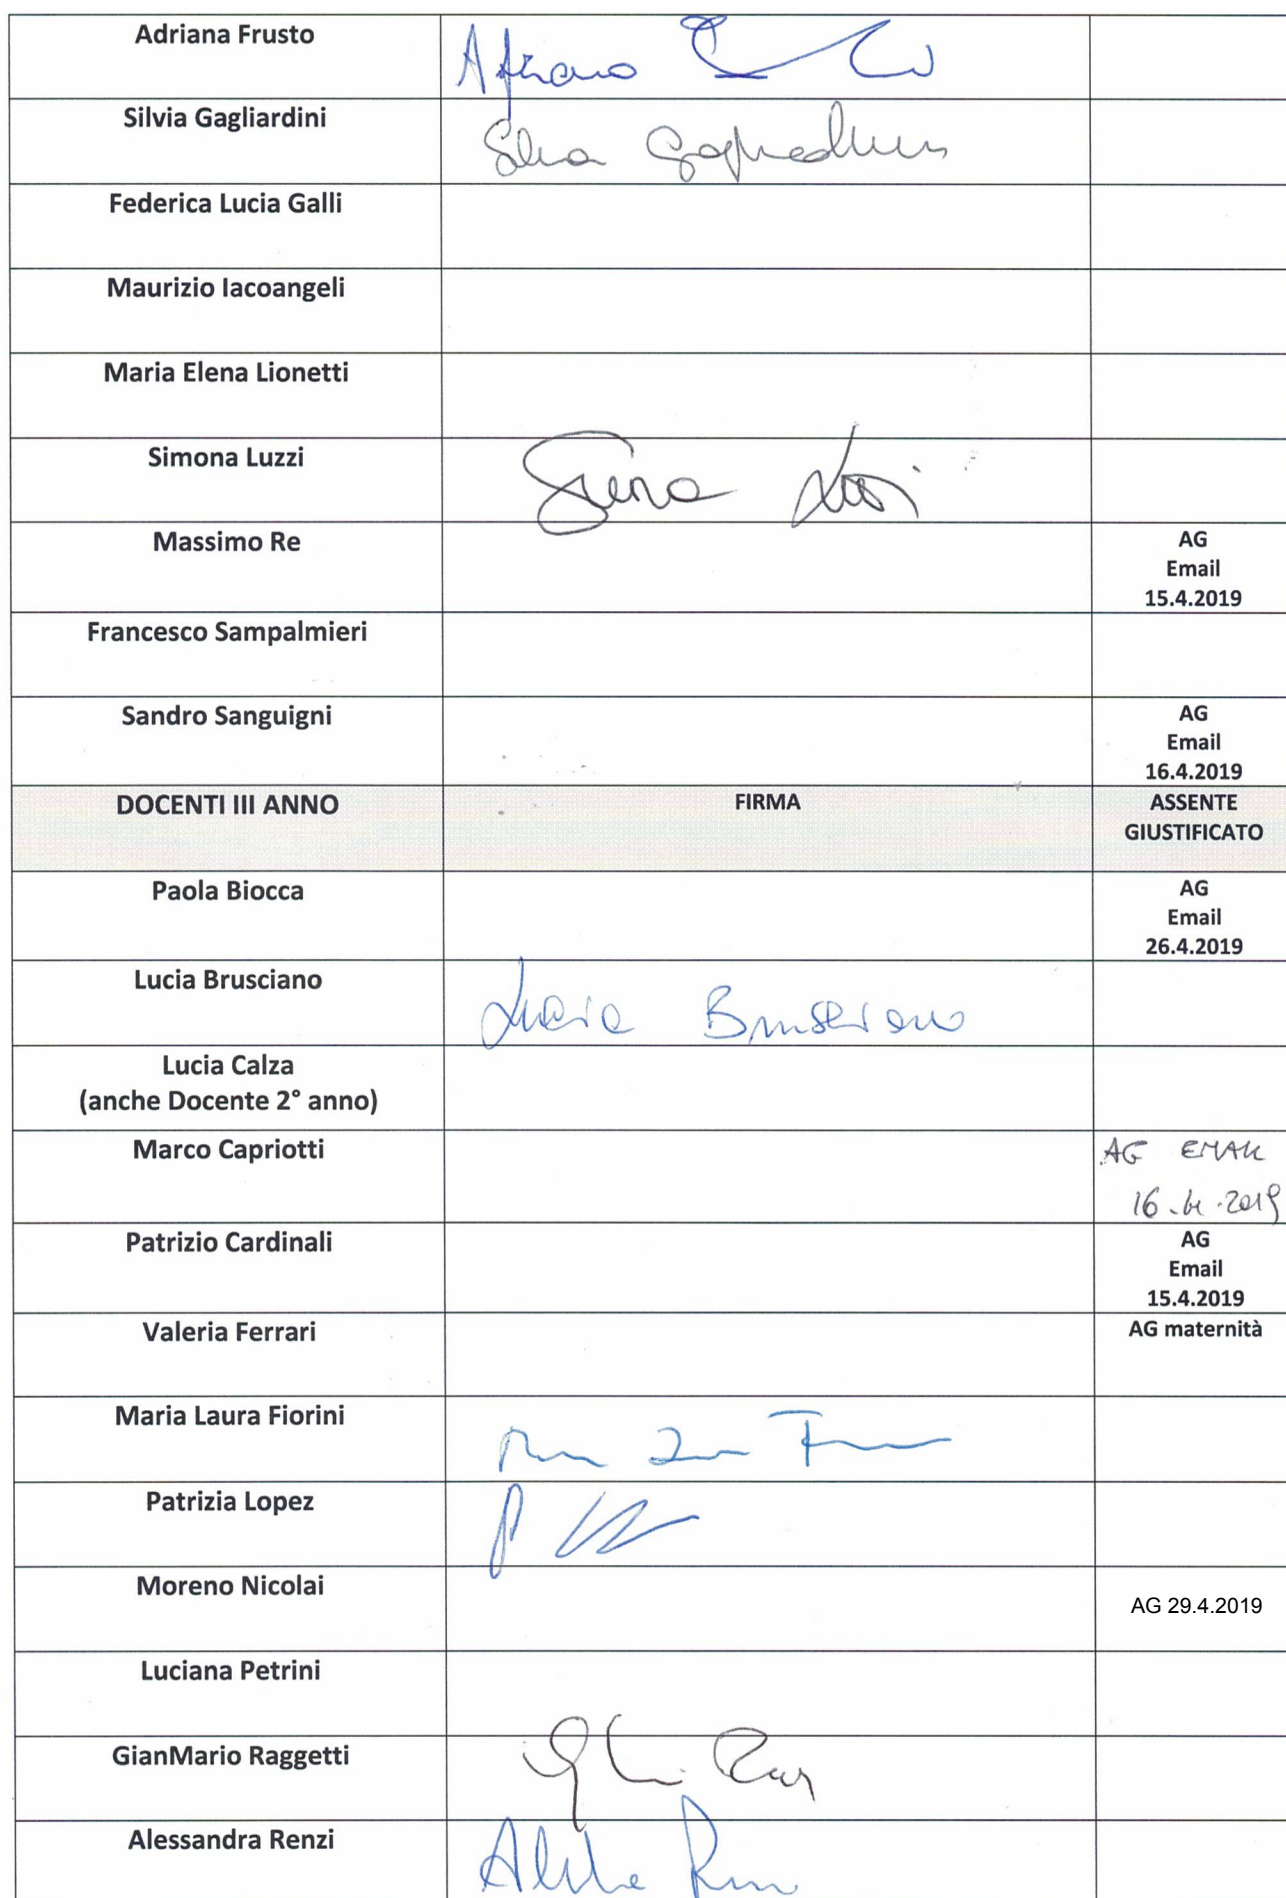 Adriana Frusto
Silvia Gagliardini
Federica Lucia Galli
Maurizio Iacoangeli
Maria Elena Lionetti
Simona Luzzi
Massimo Re
AG
Email
15.4.2019
Francesco Sampalmieri
Sandro Sanguigni
AG
Email
16.4.2019
DOCENTI III ANNO FIRMA ASSENTE
GIUSTIFICATO
Paola Biocca
AG
Email
26.4.2019
Lucia Brusciano Lucia Brusciano
Lucia Calza
(anche Docente 2° anno)
Marco Capriotti AG EMAIL
16.4.2019
Patrizio Cardinali
AG
Email
15.4.2019
Valeria Ferrari AG maternità
Maria Laura Fiorini
Patrizia Lopez
Moreno Nicolai AG 29.4.2019
Luciana Petrini
GianMario Raggetti
Alessandra Renzi